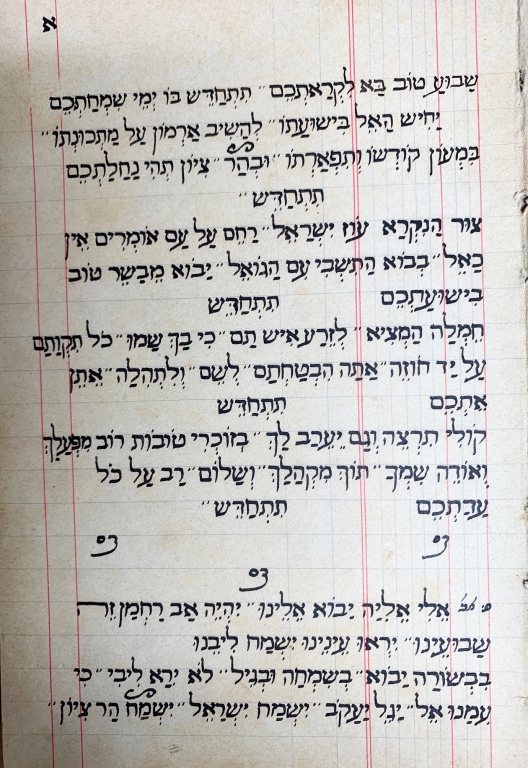 א
שָׁבוּעַ טוֹב בָּא לִקְרַאתְכֶם ״ תִּתְחַדֵּשׁ בּוֹ יְמֵי שִׂמְחַתְכֶם
יָחִישׁ הָאֵל בִּישׁוּעָתוֹ ״ לְהָשִׁיב אַרְמוֹן עַל מַתְכּוּנְתוֹ ״
בִּמְעוֹן קוֹדְשׁוֹ וְתִפְאַרְתּוֹ ״ וּבְהַר ״ צִיּוֹן תְּהִי נַחֲלַתְכֶם
תִּתְחַדֵּשׁ ״
צוּר הַנִּקְרָא עוֹז יִשְׂרָאֵל ״ רַחֵם עַל עַם אוֹמְרִים אֵין
כָּאֵל ״ בְּבוֹא הַתִּשְׁבִּי עִם הַגּוֹאֵל ״ יָבוֹא מְבַשֵּׂר טוֹב
בִּישׁוּעַתְכֶם תִּתְחַדֵּשׁ
חֶמְלָה הַמְצִיא ״ לְזֶרַע אִישׁ תָּם ״ כִּי בָךְ שָׂמוּ ״ כֹּל תִּקְוָתָם
עַל יַד חוֹזֶה ״ אַתָּה הִבְטַחְתָּם ״ לְשֵׁם ״ וְלִתְהִלָּה ״ אֶתֵּן
אֶתְכֶם תִּתְחַדֵּשׁ
קוֹלִי תִרְצֶה וְגַם יֶעֱרַב לָךְ ״ בְּזוֹכְרִי טוֹבוֹת רוֹב מִפְעָלָךְ
וְאוֹדֶה שִׁמְךָ ״ תּוֹךְ מִקְהָלָךְ ״ וְשָׁלוֹם ״ רַב עַל כֹּל
עֲדַתְכֶם תִּתְחַדֵּשׁ ״
אֵלִי אֵלִיָּה יָבוֹא אֵלֵינוּ ״ יִהְיֶה אַב רַחְמָן זֶה
שָׁבוּעֵינוּ ״ יִרְאוּ עֵינֵינוּ יִשְׂמַח לִיבֵּנוּ
בִּבְשׂוֹרָה יָבוֹא ״ בְּשִׂמְחָה וּבְגִיל ״ לֹא יִרָא לִיבִּי ״ כִּי
עִמָּנוּ אֵל ״ יָגֵל יַעֲקֹב ״ יִשְׂמַח יִשְׂרָאֵל ״ יִשְׂמַח הַר צִיּוֹן ״